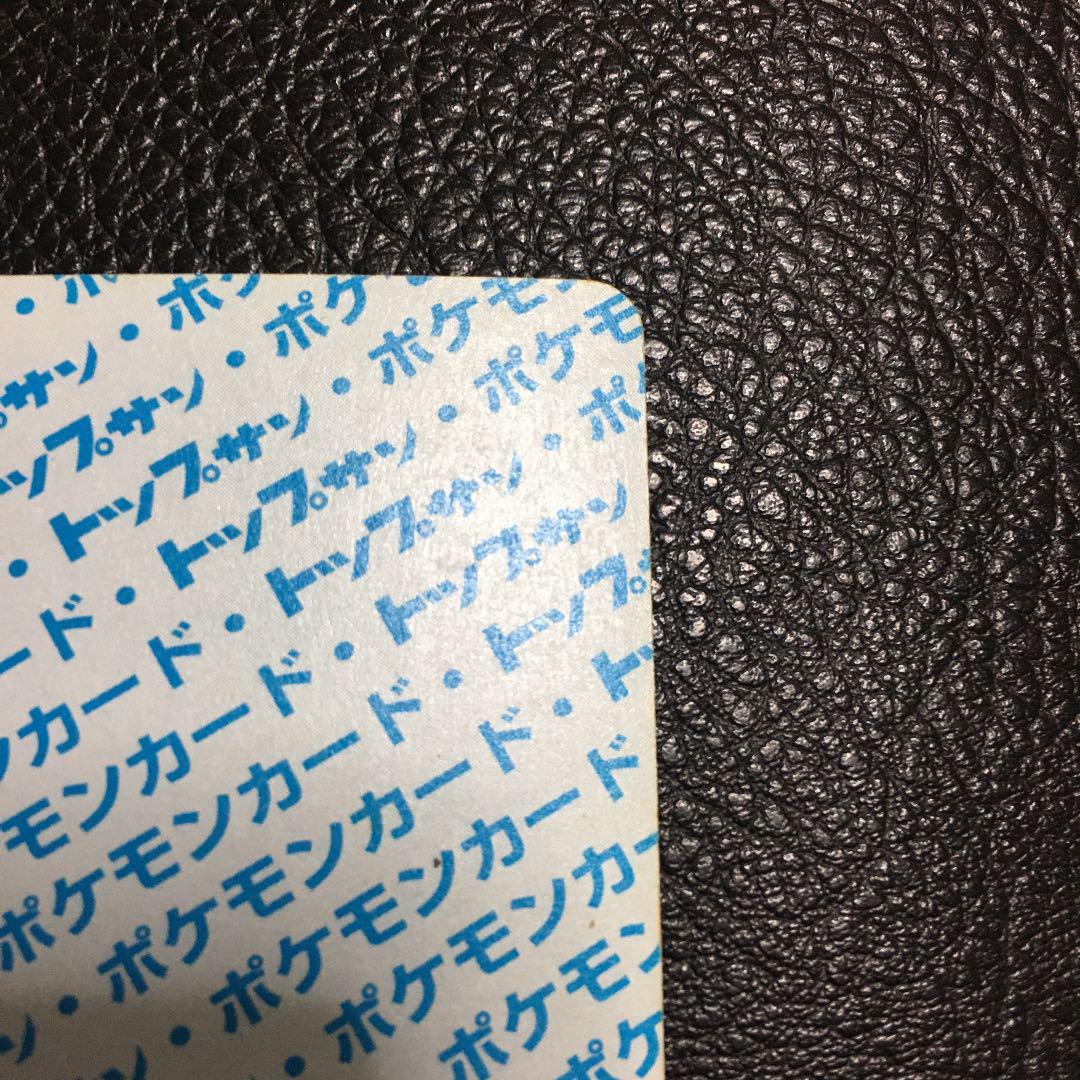 ・ポ
サン・ポケ
ップサン・ポケ
・トップサン・ポケモ
ード・トップサン・ポケモ
ンカード・トップサン・ポ
モンカード・トップサン
ポケモンカード・トップ
ン・ポケモンカード・ト
ン・ポケモンカード
・ポケモンカー
ポケモン
ポケ